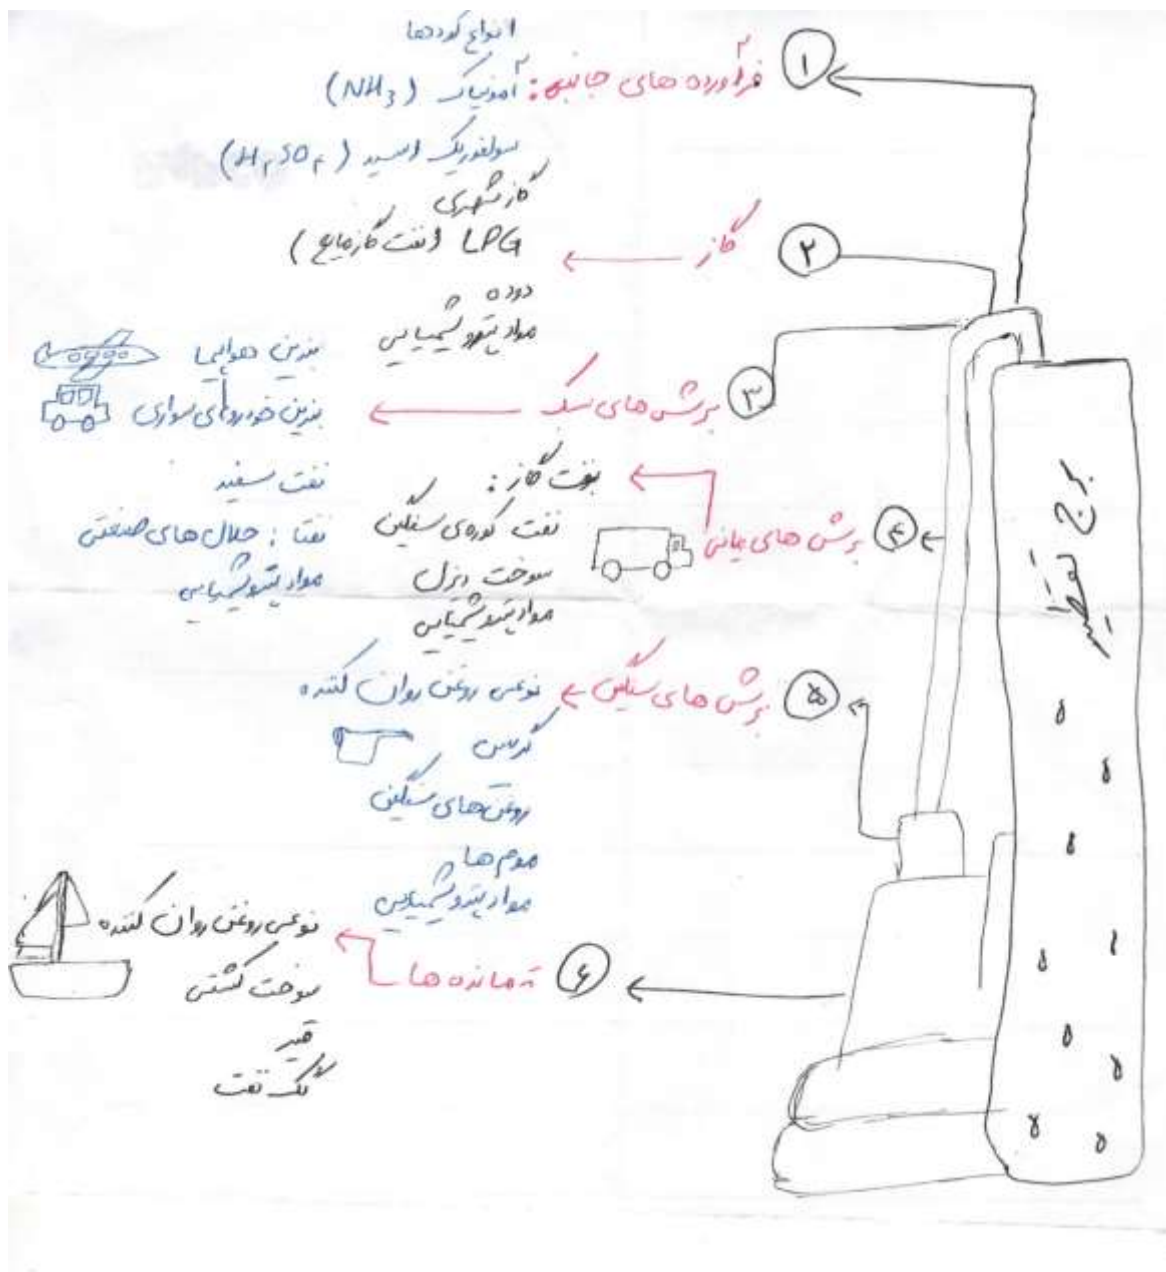 انواع کودها
۱ فرآورده های جانبی: آمونیاک (NH3)
سولفوریک اسید (H۲SO۴)
۲ گاز
گاز شهری
LPG (نفت گاز مایع)
دوده
مواد پتروشیمیایی
۳ برش های سبک
بنزین هواپیما
بنزین خودروهای سواری
نفت سفید
نفتا: حلال های صنعتی
مواد پتروشیمیایی
۴ برش های میانی
نفت گاز:
نفت کوره‌ی سنگین
سوخت دیزل
مواد پتروشیمیایی
۵ برش های سنگین
نوعی روغن روان کننده
گریس
روغن های سنگین
موم ها
مواد پتروشیمیایی
۶ ته مانده ها
نوعی روغن روان کننده
سوخت کشتی
قیر
کک نفت
برج تقطیر